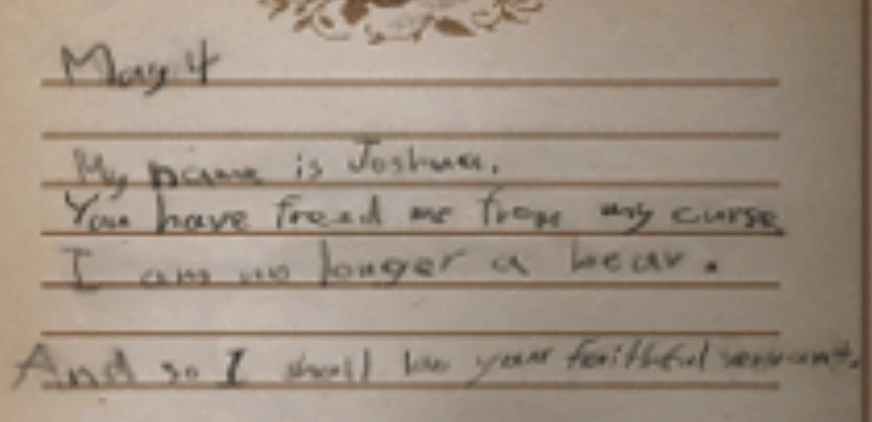 May 4
My name is Joshua.
You have freed me from my curse
I am no longer a bear.
And so I shall be your faithful servant.